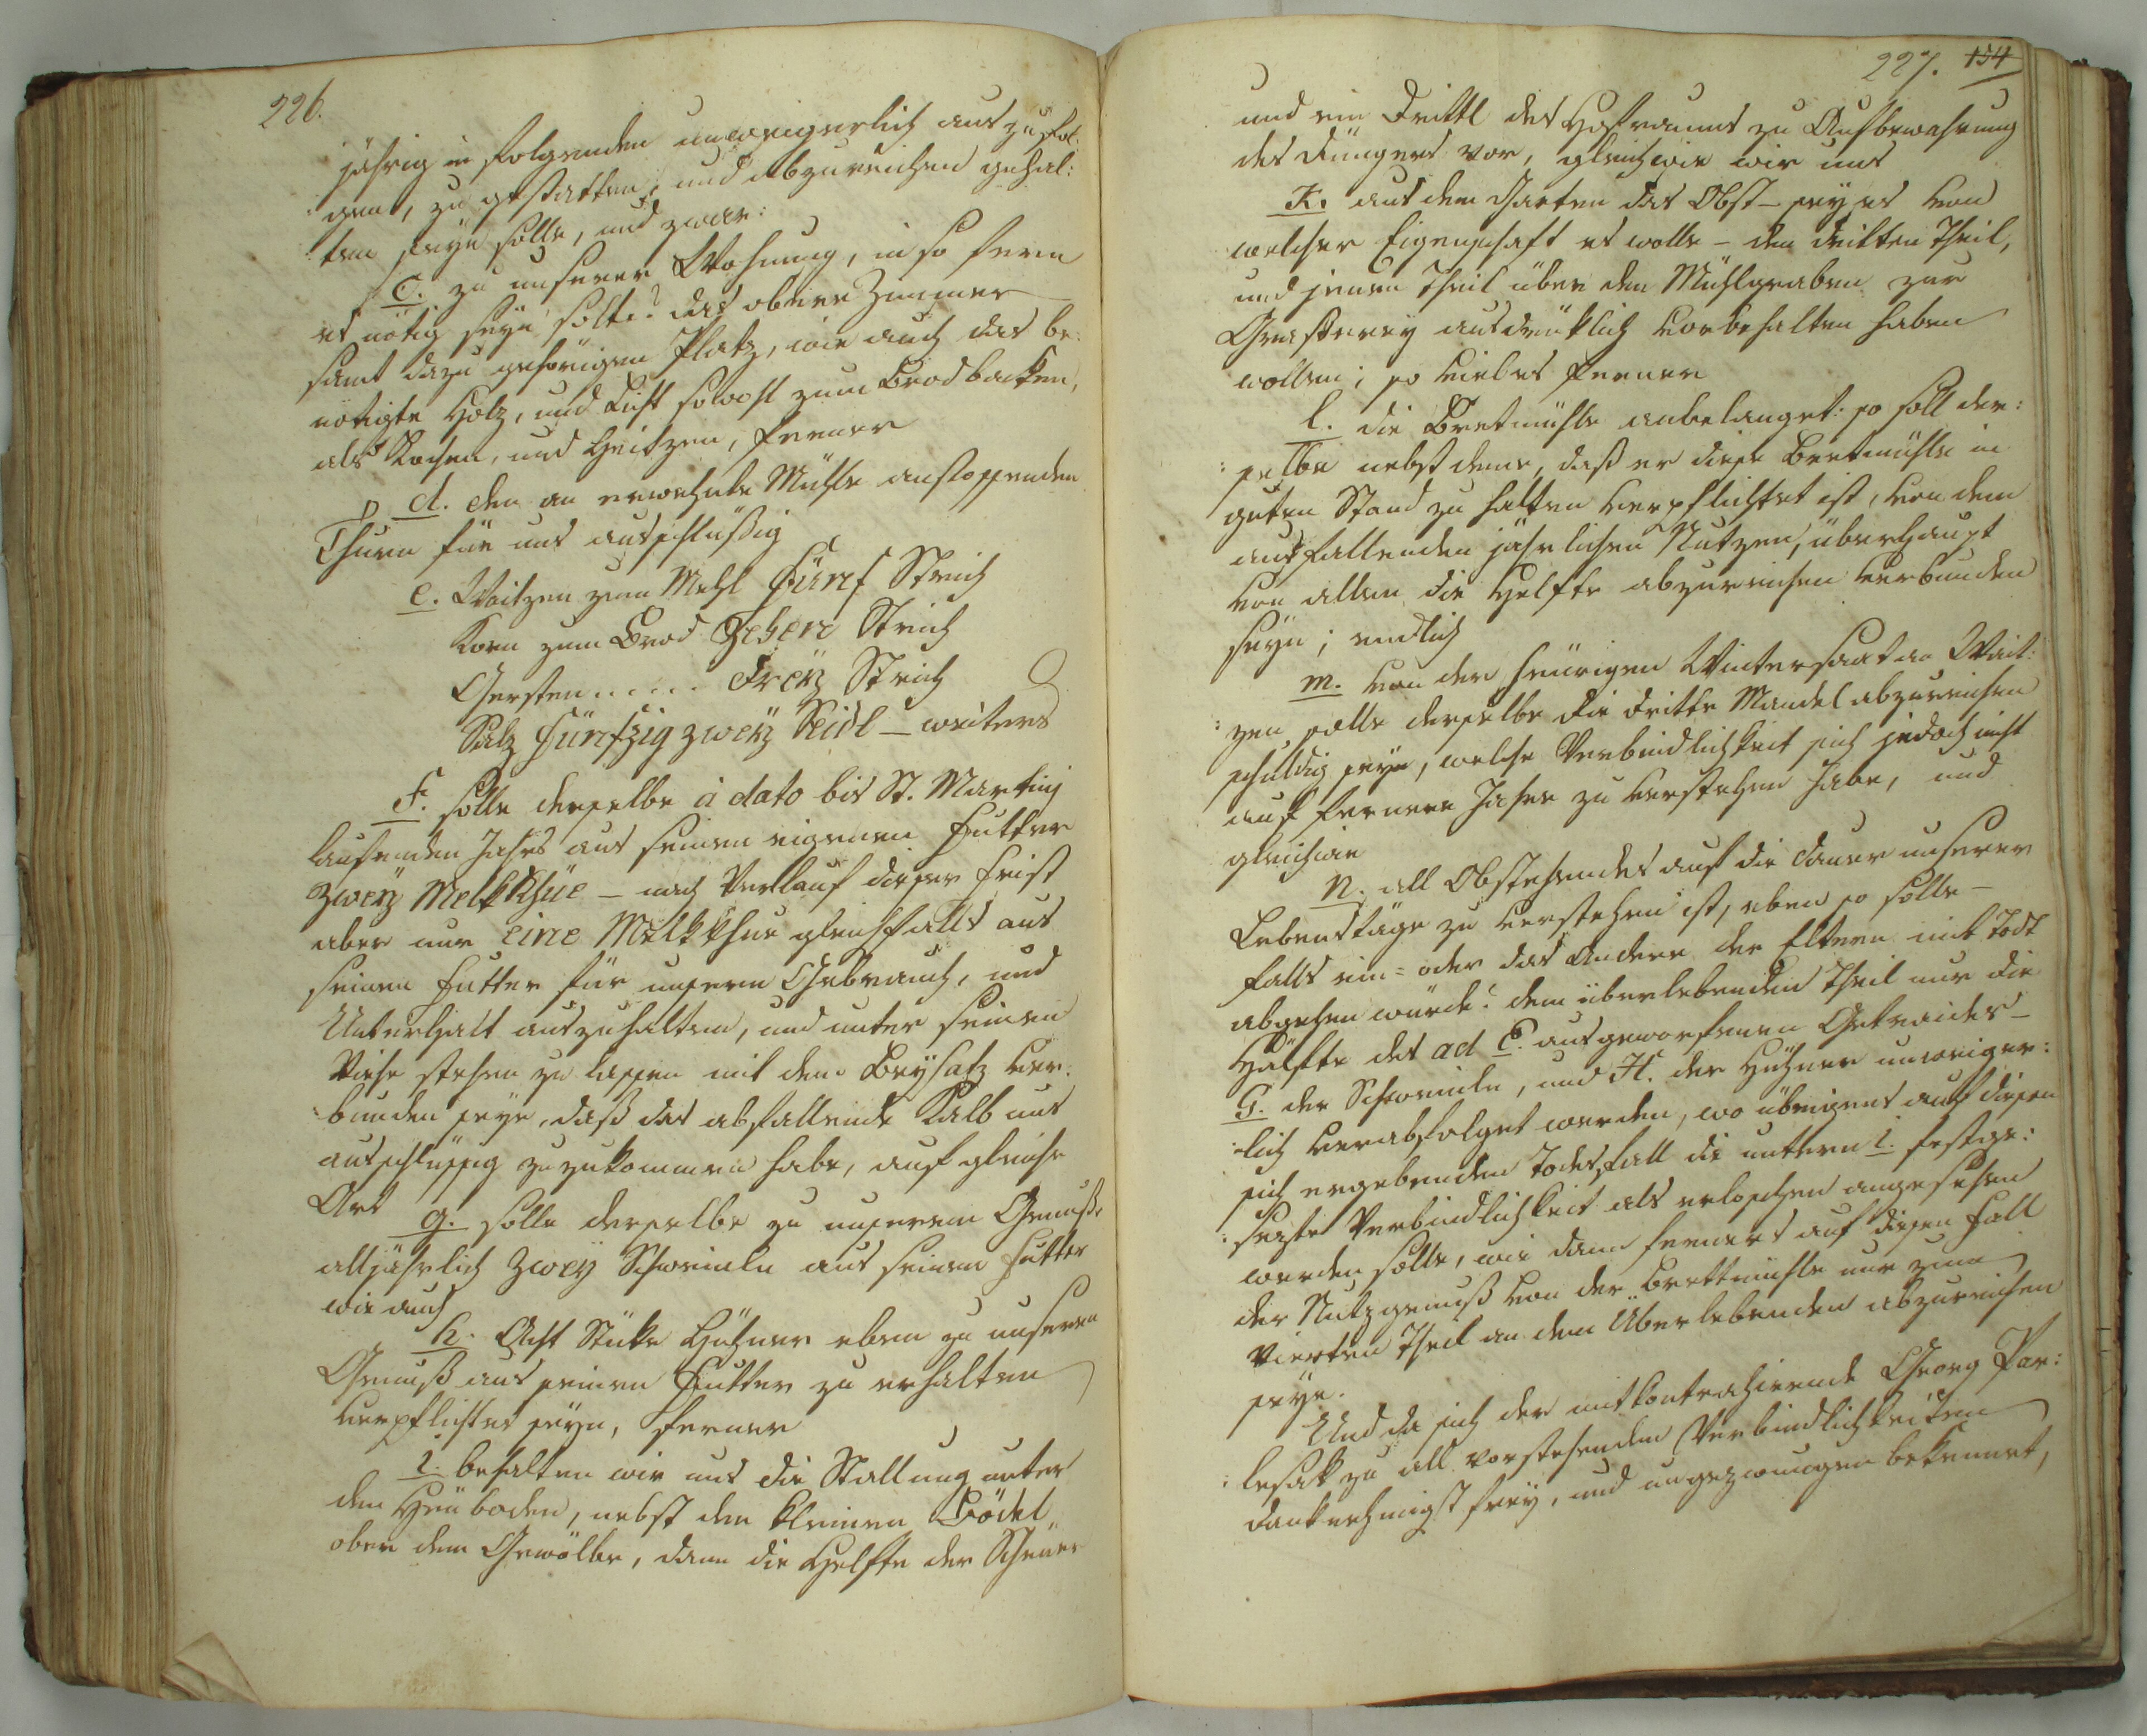 226.
jährig in folgenden unweigerlich auszufol:
gen, zu gestatten, und abzureichen gehal:
ten seyn solle, und zwar:
C. zu unserer Wohnung, in so fern
es nötig seyn solte? das obere Zimmer
samt dazu gehörigen Platz, wie auch das be:
nötigte Holz, und Licht sowohl zum Brod backen,
als Kochen, und Heitzen, ferner
d. den an erwehnte Mühle anstossenden
Thurn für uns ausschlüßig
e. Waitzen zum Mehl Fünf Strich
Korn zum Brod Zehen Strich
Gersten ..... Dreÿ Strich
Salz Fünfzig zweÿ Seidl – weiters
F. solle derselbe à dato bis St. Martinj
laufenden Jahrs aus seinen eigenen Futter
Zweÿ Melkkhüe – nach Verlauf dieser Frist
aber nur eine Melkkhue gleichfalls aus
seinen Futter für unsern Gebrauch, und
Unterhalt auszuhalten, und unter seinen
Viehe stehen zu lassen mit dem Beysatz ver:
bunden seye, daß das abfallende Kalb uns
ausschlüssig zuzukommen habe, auf gleiche
Art
g. solle derselbe zu unserem Genuß
alljährlich Zweÿ Schweindln aus seinem Futter
wie auch
h. Acht Stüke Hühner eben zu unseren
Genuß aus seinen Futter zu erhalten
verpflichtet seyn, ferner
i. behalten wir uns die Stallung unter
den Heüboden, nebst den kleinen Bödel
ober dem Gewölbe, dann die Helfte der Scheüer
227. 154
und ein Drittl des Hofraums zu Aufbewahrung
des Düngers vor, gleichwie wir uns
K. aus dem Garten das Obst – sey es von
welcher Eigenschaft es wolle – den dritten Theil,
und jenen Theil über den Mühlgraben zur
Graserey ausdrüklich vorbehalten haben
wollen; so viel es ferner
l. die Bretmühle anbelanget: so soll der:
:selbe nebst deme, daß er diese Bretmühle in
guten Stand zu halten verpflichtet ist, von dem
ausfallenden jährlichen Nutzen, überhaupt
von allem die Helfte abzureichen verbunden
seyn; endlich
m. von der heürigen Wintersaat an Wait:
:zen solle derselbe die dritte Mandel abzureichen
schuldig seyn, welche Verbindlichkeit sich jedoch nicht
auf fernere Jahre zu verstehen habe, und
gleichwie
N. all Obstehendes auf die Dauer unserer
Lebenstäge zu verstehen ist, eben so solle –
falls ein= oder das Andere der Eltern mit Todt
abgehen würde? dem überlebenden Theil nur die
Hälfte des ad E. ausgeworfenen Getraides –
G. der Schweindln, und H. der Hühner unweiger:
:lich verabfolget werden, wo übrigens auf diesen
sich ergebenden Todesfall die untern i. festge:
:sezte Verbindlichkeit als erloschen angesehen
werden solle, wie dann ferners auf diesen Fall
der Nutzgenuß von der Brettmühle nur zum
Vierten Theil an dem Überlebenden abzureichen
seye.
Und da sich der mitkontrahirende Georg Par:
:lesak zu all vorstehenden Verbindlichkeiten
danknehmigst frey, und ungezwungen bekennet,